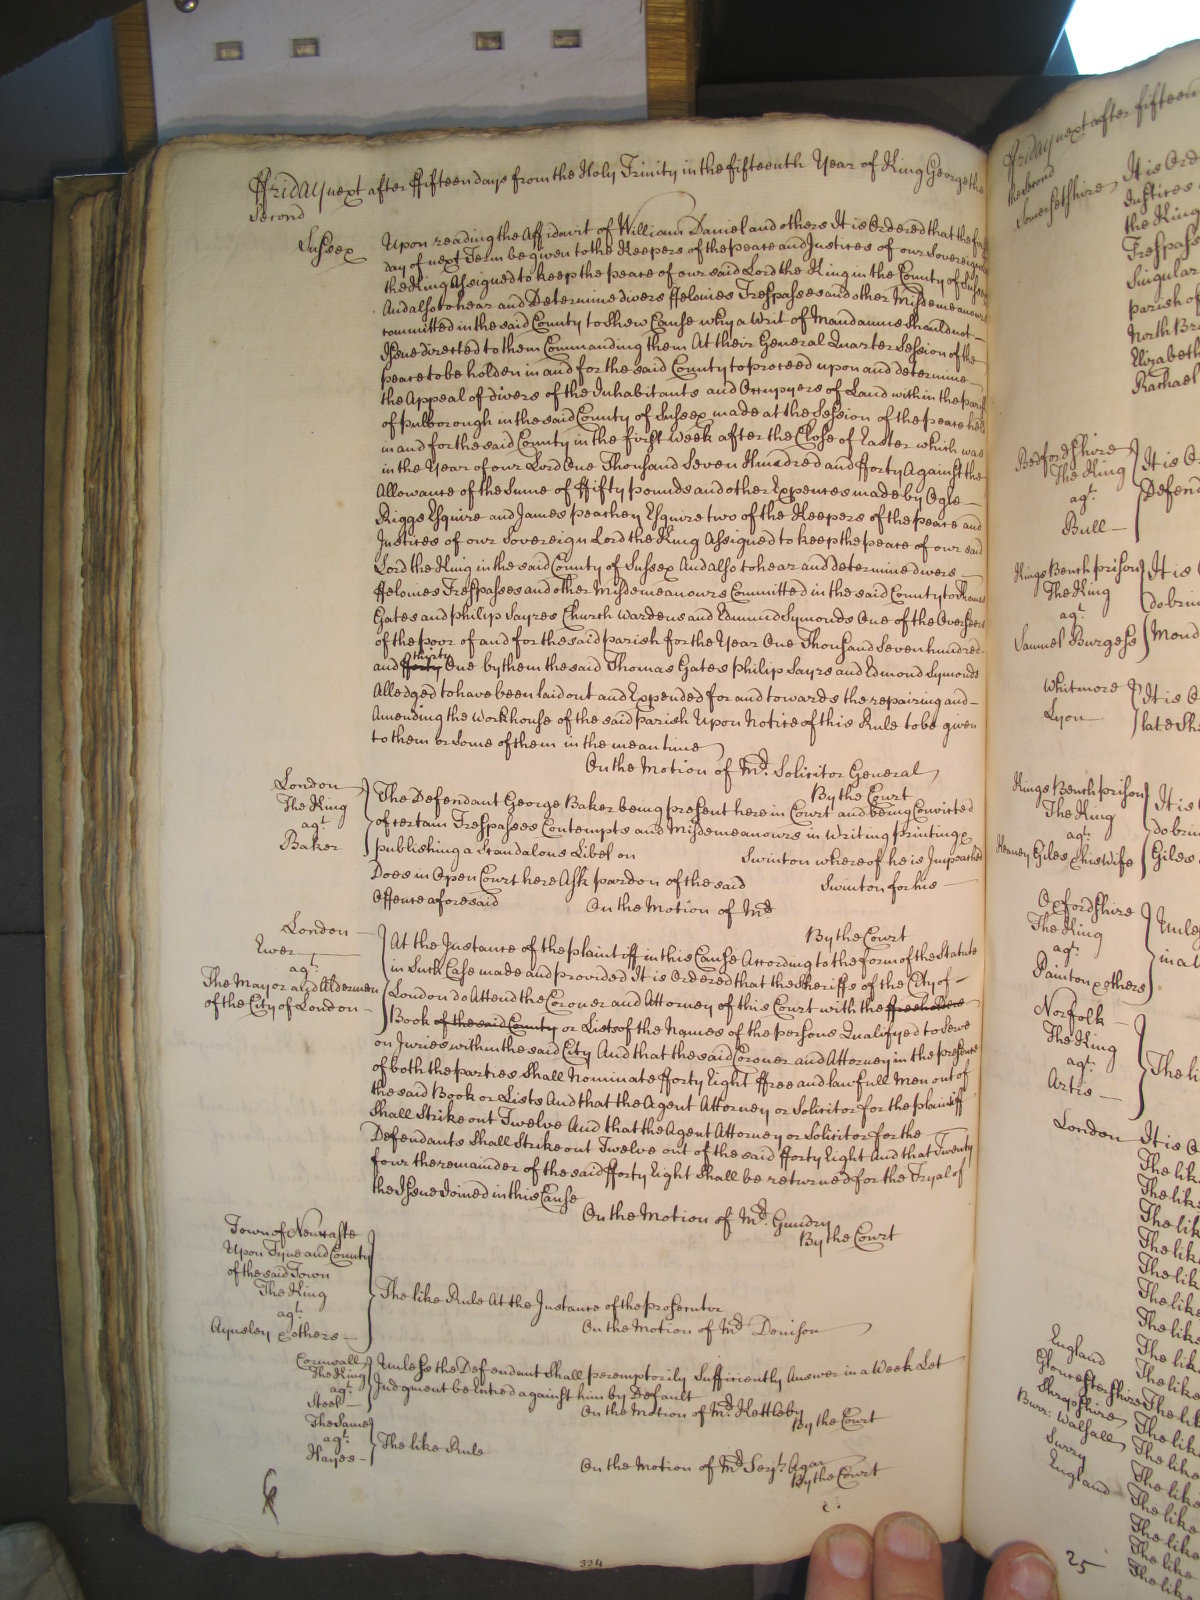 Friday next after Fifteen days from the Holy Trinity in the fifteenth Year of King George the
Second
Sussex
Upon reading the Affidavit of William Daniel and others It is Ordered that the first
day of next Term be given to the Keepers of the peace and Justices of our Sovereign
the King Assigned to keep the peace of our said Lord the King in the County of Sussex
And also to hear and Determine divers ffelonies Trespasses and other Misdemeanours
committed in the said County to Shew Cause why a Writ of Mandamus should not
Issue directed to them Commanding them At their General Quarter Session of the
peace to be holden in and for the said County to proceed upon and determine
the Appeal of divers of the Inhabitants and Occupyers of Land within the parish
of pulborough in the said County of Sussex made at the Session of the peace held
in and for the said County in the first Week after the Close of Easter which was
in the Year of our Lord One Thousand Seven Hundred and fforty Against the
Allowance of the Sume of ffifty pounds and other Expences made by Ogle
Riggs Esquire and James peachey Esquire two of the Keepers of the peace and
Justices of our Sovereign Lord the King Assigned to keep the peace of our said
Lord the King in the said County of Sussex And also to hear and determine divers
ffelonies Trespasses and other Misdemeanours Committed in the said County to Thomas
Gates and philip Sayres Church Wardens and Edmund Symonds One of the Overseers
of the poor of and for the said parish for the Year One Thousand Seven hundred
and fforty thirty One by them the said Thomas Gates philip Sayrs and Edmond Symonds
Alledged to have been laid out and Expended for and towards the repairing and
Amending the Workhouse of the said parish Upon Notice of this Rule to be given
to them or Some of them in the mean time
On the Motion of Mr. Solicitor General
By the Court
London
The King
agt.
Baker
The Defendant George Baker being present here in Court and being Convicted
of certain Trespasses Contempts and Misdemeanours in Writing printing &
publishing a Scandalous Libel on Swinton whereof he is Impeached
Does in Open Court here Ask pardon of the said Swinton for his
Offence aforesaid On the Motion of Mr
By the Court
London
Ewer
agt.
The Mayor and Aldermen
of the City of London
At the Instance of the plaintiff in this Cause According to the form of the Statute
in Such Case made and provided It is Ordered that the Sheriffs of the City of
London do Attend the Coroner and Attorney of this Court with the ffreeholders
Book of the said County or Lists of the Names of the persons Qualifyed to Serve
on Juries within the said City And that the said Coroner and Attorney in the presence
of both the parties Shall Nominate fforty Eight ffree and lawfull Men out of
the said Book or Lists And that the Agent Attorney or Solicitor for the plaintiff
Shall Strike out Twelve And that the Agent Attorney or Solicitor for the
Defendants Shall Strike out Twelve out of the said fforty Eight And that Twenty
four the remainder of the said fforty Eight Shall be returned for the Tryal of
the Issue Joined in this Cause
On the Motion of Mr. Gundry
By the Court
Town of Newcastle
Upon Tyne and County
of the said Town
The King
agt.
Aynsley & others
The like Rule At the Instance of the prosecutor
On the Motion of Mr Denison
Cornwall
The King
agt.
Steel
Unless the Defendant Shall peremptorily Sufficiently Answer in a Week Let
Judgment be Entred against him by Default
On the Motion of Mr. Kettleby
By the Court
The Same
agt.
Hayes
The like Rule
On the Motion of Mr Serjt. Agar
By the Court
334
Friday next after fifteen
the Second
Somersetshire
It is Ord
Justices
the King
Trespass
Singular
parish of
North Br
Elizabeth
Rachael
Bedfordshire
The King
agt.
Bull
It is O
Defend
Kings Bench prison
The King
agt.
Samuel Burgess
It is
do brin
Mond
Whitmore
Lyon
It is O
late Sh
Kings Bench prison
The King
agt.
Giles & his Wife
It is
do brin
Giles
Oxfordshire
The King
agt.
Painton & others
Unles
in a
Norfolk
The King
agt.
Artis
The li
London
It is O
The lik
The lik
The lik
The lik
The like
The like
The like
England
The like
Gloucestershire
The like
Shropshire
The like
Burr: Walsall
The like
Surry
The like
England
The like
The like
The like
The like
25